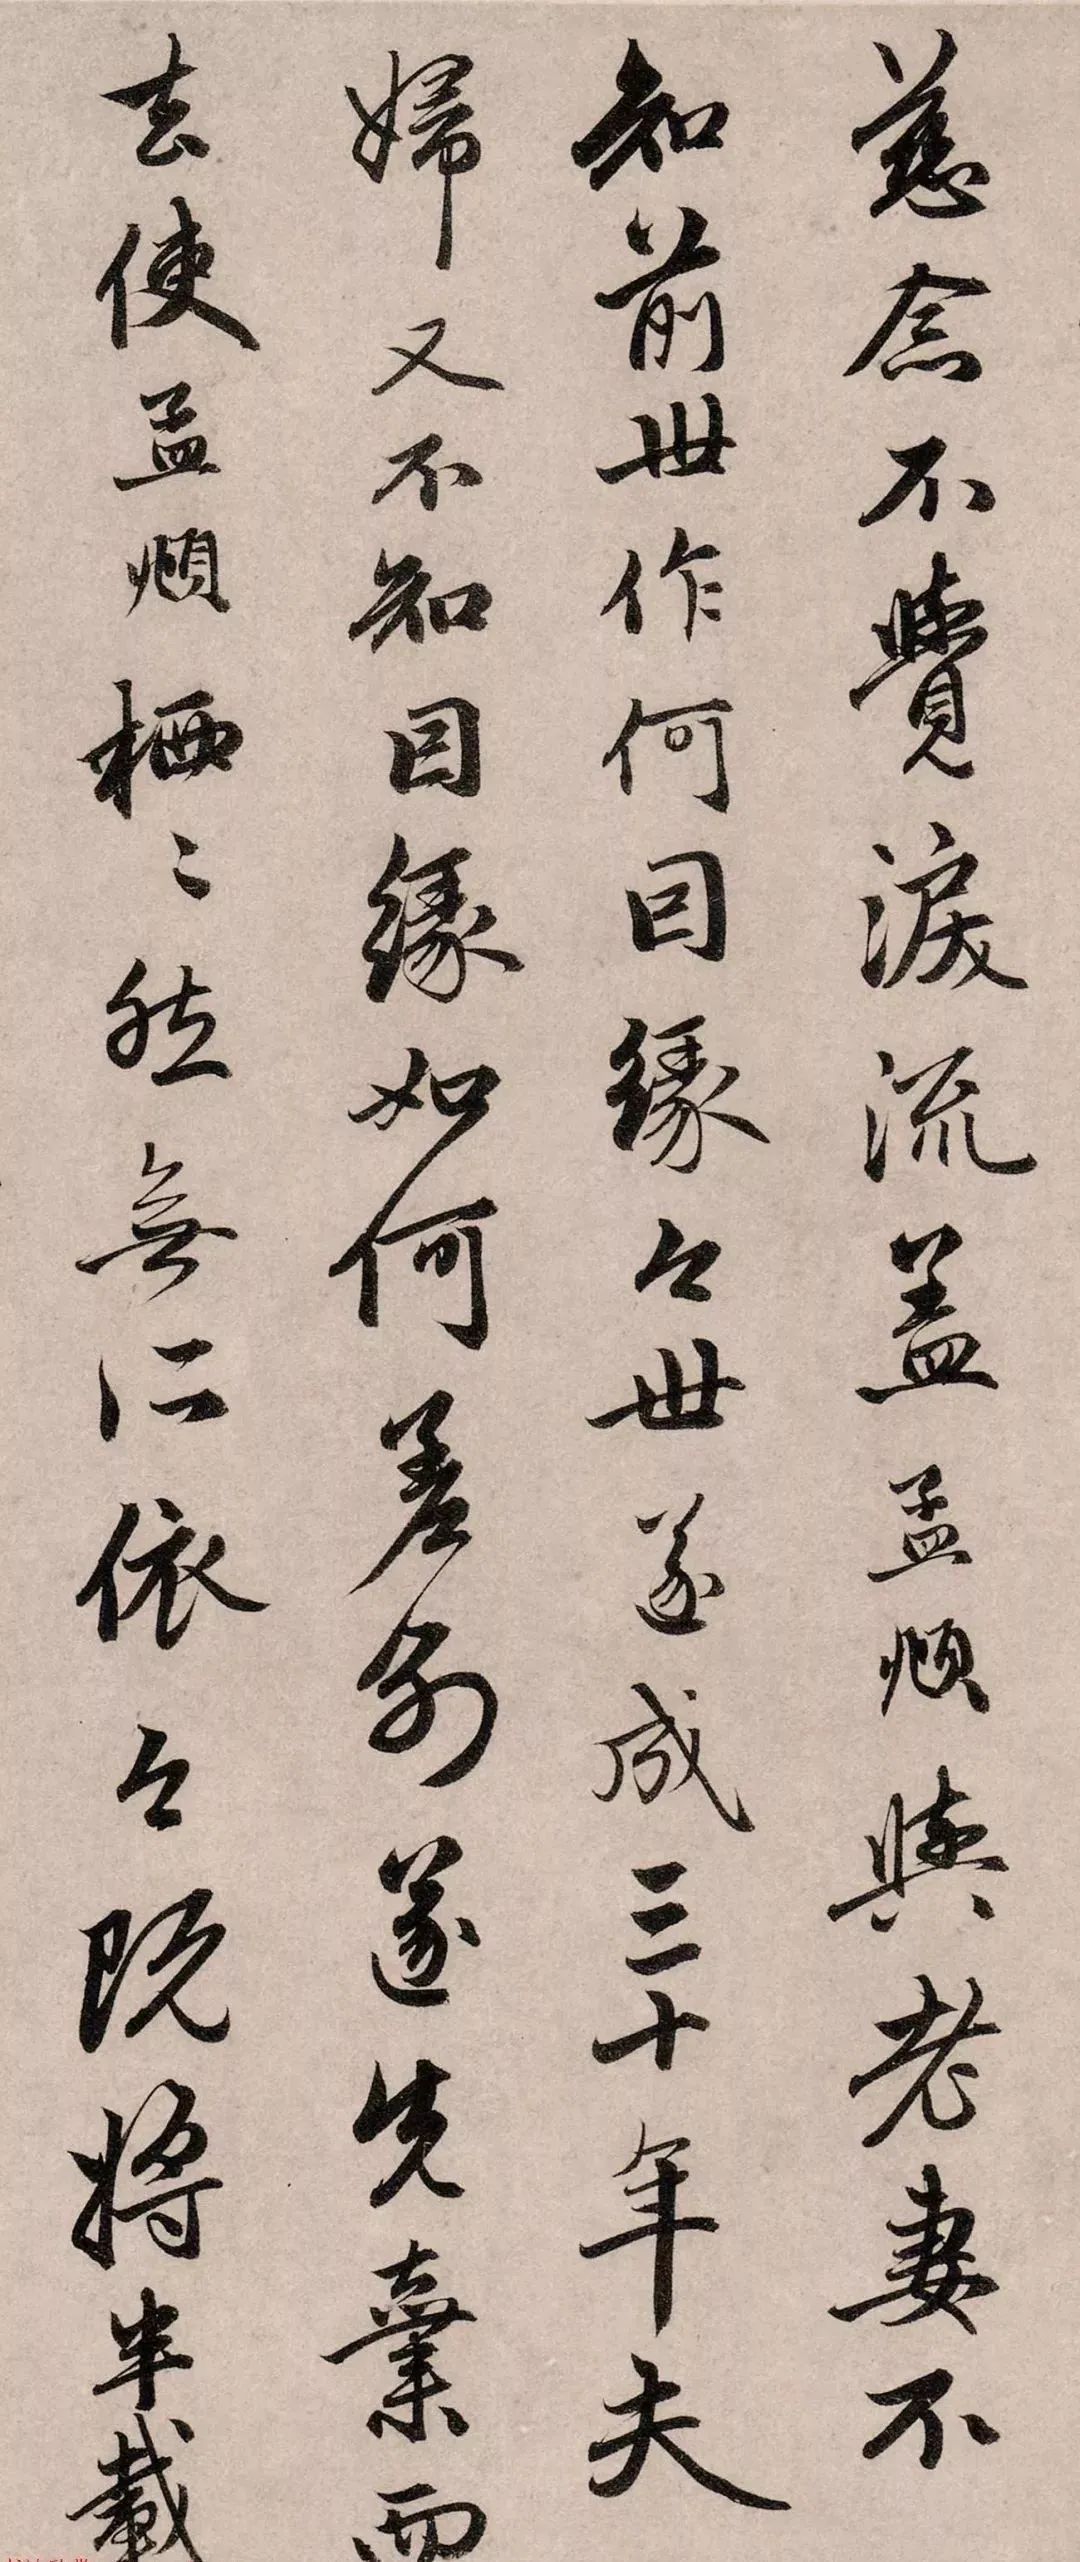 慈念不覺淚流蓋孟頫與老妻不
知前世作何因緣今世遂成三十年夫
婦又不知因緣如何差別遂先棄而
去使孟頫栖栖然無所依今既將半載